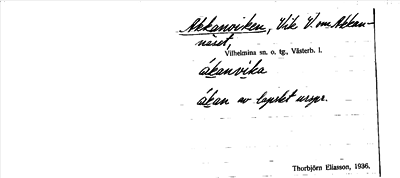 Akkanviken, Vik V. om Akkan-
näset,
Vilhelmina sn. o. tg., Västerb. l.
ákanvika
ákan av lapskt urspr.
Thorbjörn Eliasson, 1936.